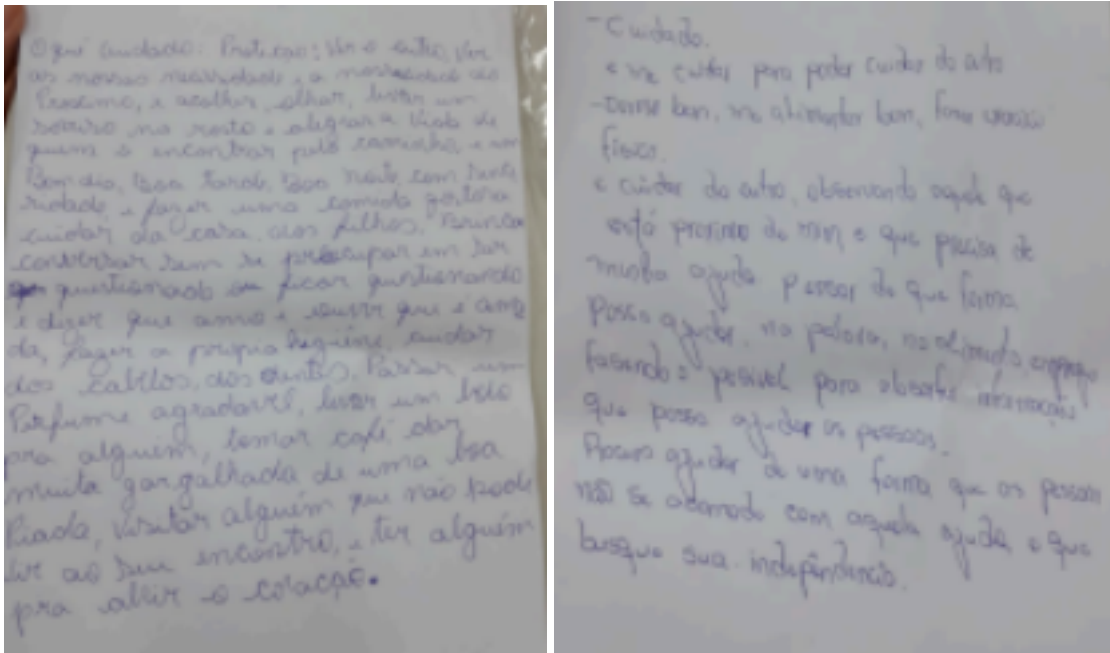 O que é cuidado: Proteção; Ver o outro, Ver
as nossas necessidade, e a necessidade do
Proximo, é acolher, olhar, levar um
sorriso no rosto e alegrar a vida de
quem se encontrar pelo caminho, é um
Bom dia, Boa tarde, Boa noite, com since
ridade é fazer uma comida gostosa
cuidar da casa, dos filhos, Brinca
conversar sem se preocupar em ser
questionado ou ficar questionando
é dizer que amo e ouvir que é ama
da, fazer a propia higiene, cuidar
dos cabelos, dos dentes, Passar um
Perfume agradavel, levar um bolo
pra alguém, tomar café, dar
muita gargalhada de uma boa
Piada, visitar alguém que não pode
ir ao seu encontro, e ter alguém
pra abrir o coração.
- Cuidado.
e me cuidar para poder cuidar do outro
- bem, me alimentar bem, fazer
fisico.
e cuidar do outro, observando aquele que
está proximo de mim e que precisa de
minha ajuda de que forma
posso ajudar, na palavra, no alimento, emprego
fazendo o possivel para informação
que possa ajudar as pessoas.
Procuro ajudar de uma forma que as pessoas
não se acomode com aquela ajuda, e que
busque sua independência.